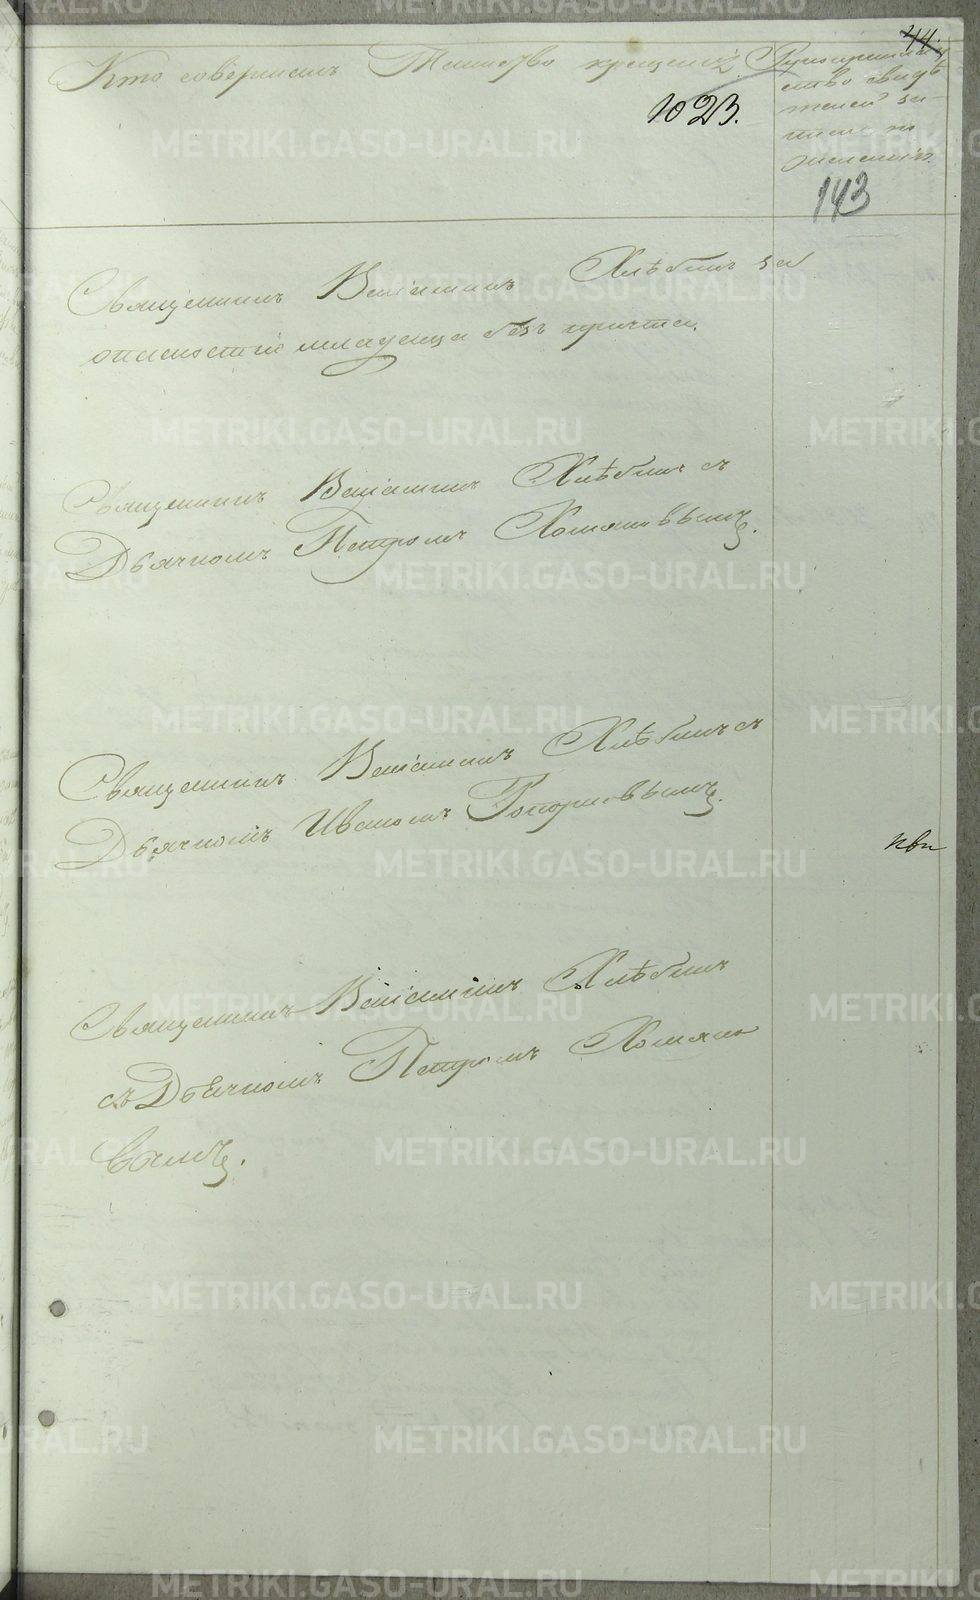 44.
Кто совершалъ Таинство крещенія
Рукоприклад
ство свидѣ
телей за
писи по
желанію.
1023.
143
Священникъ Веніаминъ Хлѣбинъ за
опасностію младенца безъ причта.
Священникъ Веніаминъ Хлѣбинъ съ
Дьячкомъ Петромъ Хомяковымъ.
Священникъ Веніаминъ Хлѣбинъ съ
Дьячкомъ Иваномъ Топорковымъ.
Священникъ Веніаминъ Хлѣбинъ
съ Дьячкомъ Петромъ Хомяко
вымъ.
METRIKI.GASO-URAL.RU